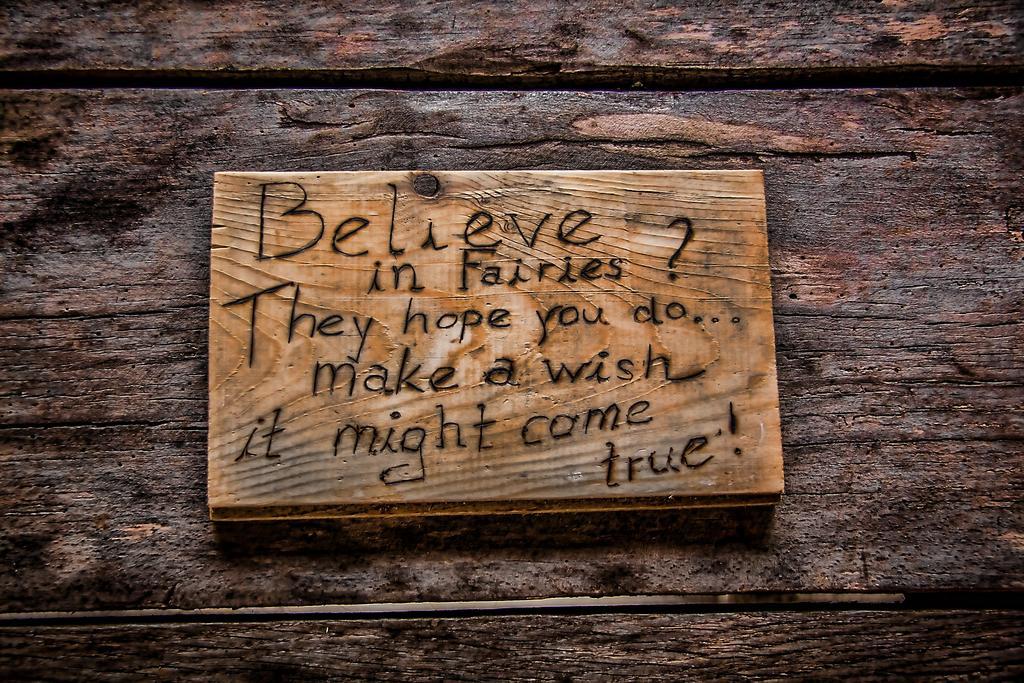 Believe
in Fairies ?
They hope you do...
make a wish
it might come
true!